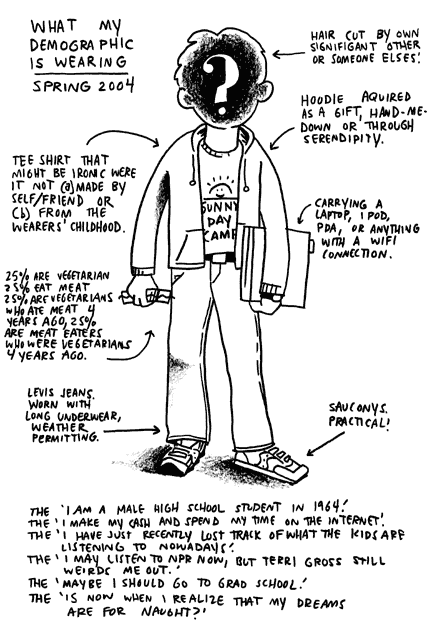 WHAT MY
DEMOGRAPHIC
IS WEARING
SPRING 2004
HAIR CUT BY OWN
SIGNIFIGANT OTHER
OR SOMEONE ELSES!
HOODIE AQUIRED
AS A GIFT, HAND-ME-
DOWN OR THROUGH
SERENDIPITY.
TEE SHIRT THAT
MIGHT BE IRONIC WERE
IT NOT (a) MADE BY
SELF/FRIEND OR
(b) FROM THE
WEARERS' CHILDHOOD.
?
SUNNY
DAY
CAMP
CARRYING A
LAPTOP, I POD,
PDA, OR ANYTHING
WITH A WIFI
CONNECTION.
25% ARE VEGETARIAN
25% EAT MEAT
25% ARE VEGETARIANS
WHO ATE MEAT 4
YEARS AGO, 25%
ARE MEAT EATERS
WHO WERE VEGETARIANS
4 YEARS AGO.
LEVIS JEANS.
WORN WITH
LONG UNDERWEAR,
WEATHER
PERMITTING.
SAUCONYS.
PRACTICAL!
THE 'I AM A MALE HIGH SCHOOL STUDENT IN 1964.'
THE 'I MAKE MY CASH AND SPEND MY TIME ON THE INTERNET'.
THE 'I HAVE JUST RECENTLY LOST TRACK OF WHAT THE KIDS ARE
LISTENING TO NOWADAYS.'
THE 'I MAY LISTEN TO NPR NOW, BUT TERRI GROSS STILL
WEIRDS ME OUT.'
THE 'MAYBE I SHOULD GO TO GRAD SCHOOL.'
THE 'IS NOW WHEN I REALIZE THAT MY DREAMS
ARE FOR NAUGHT?'